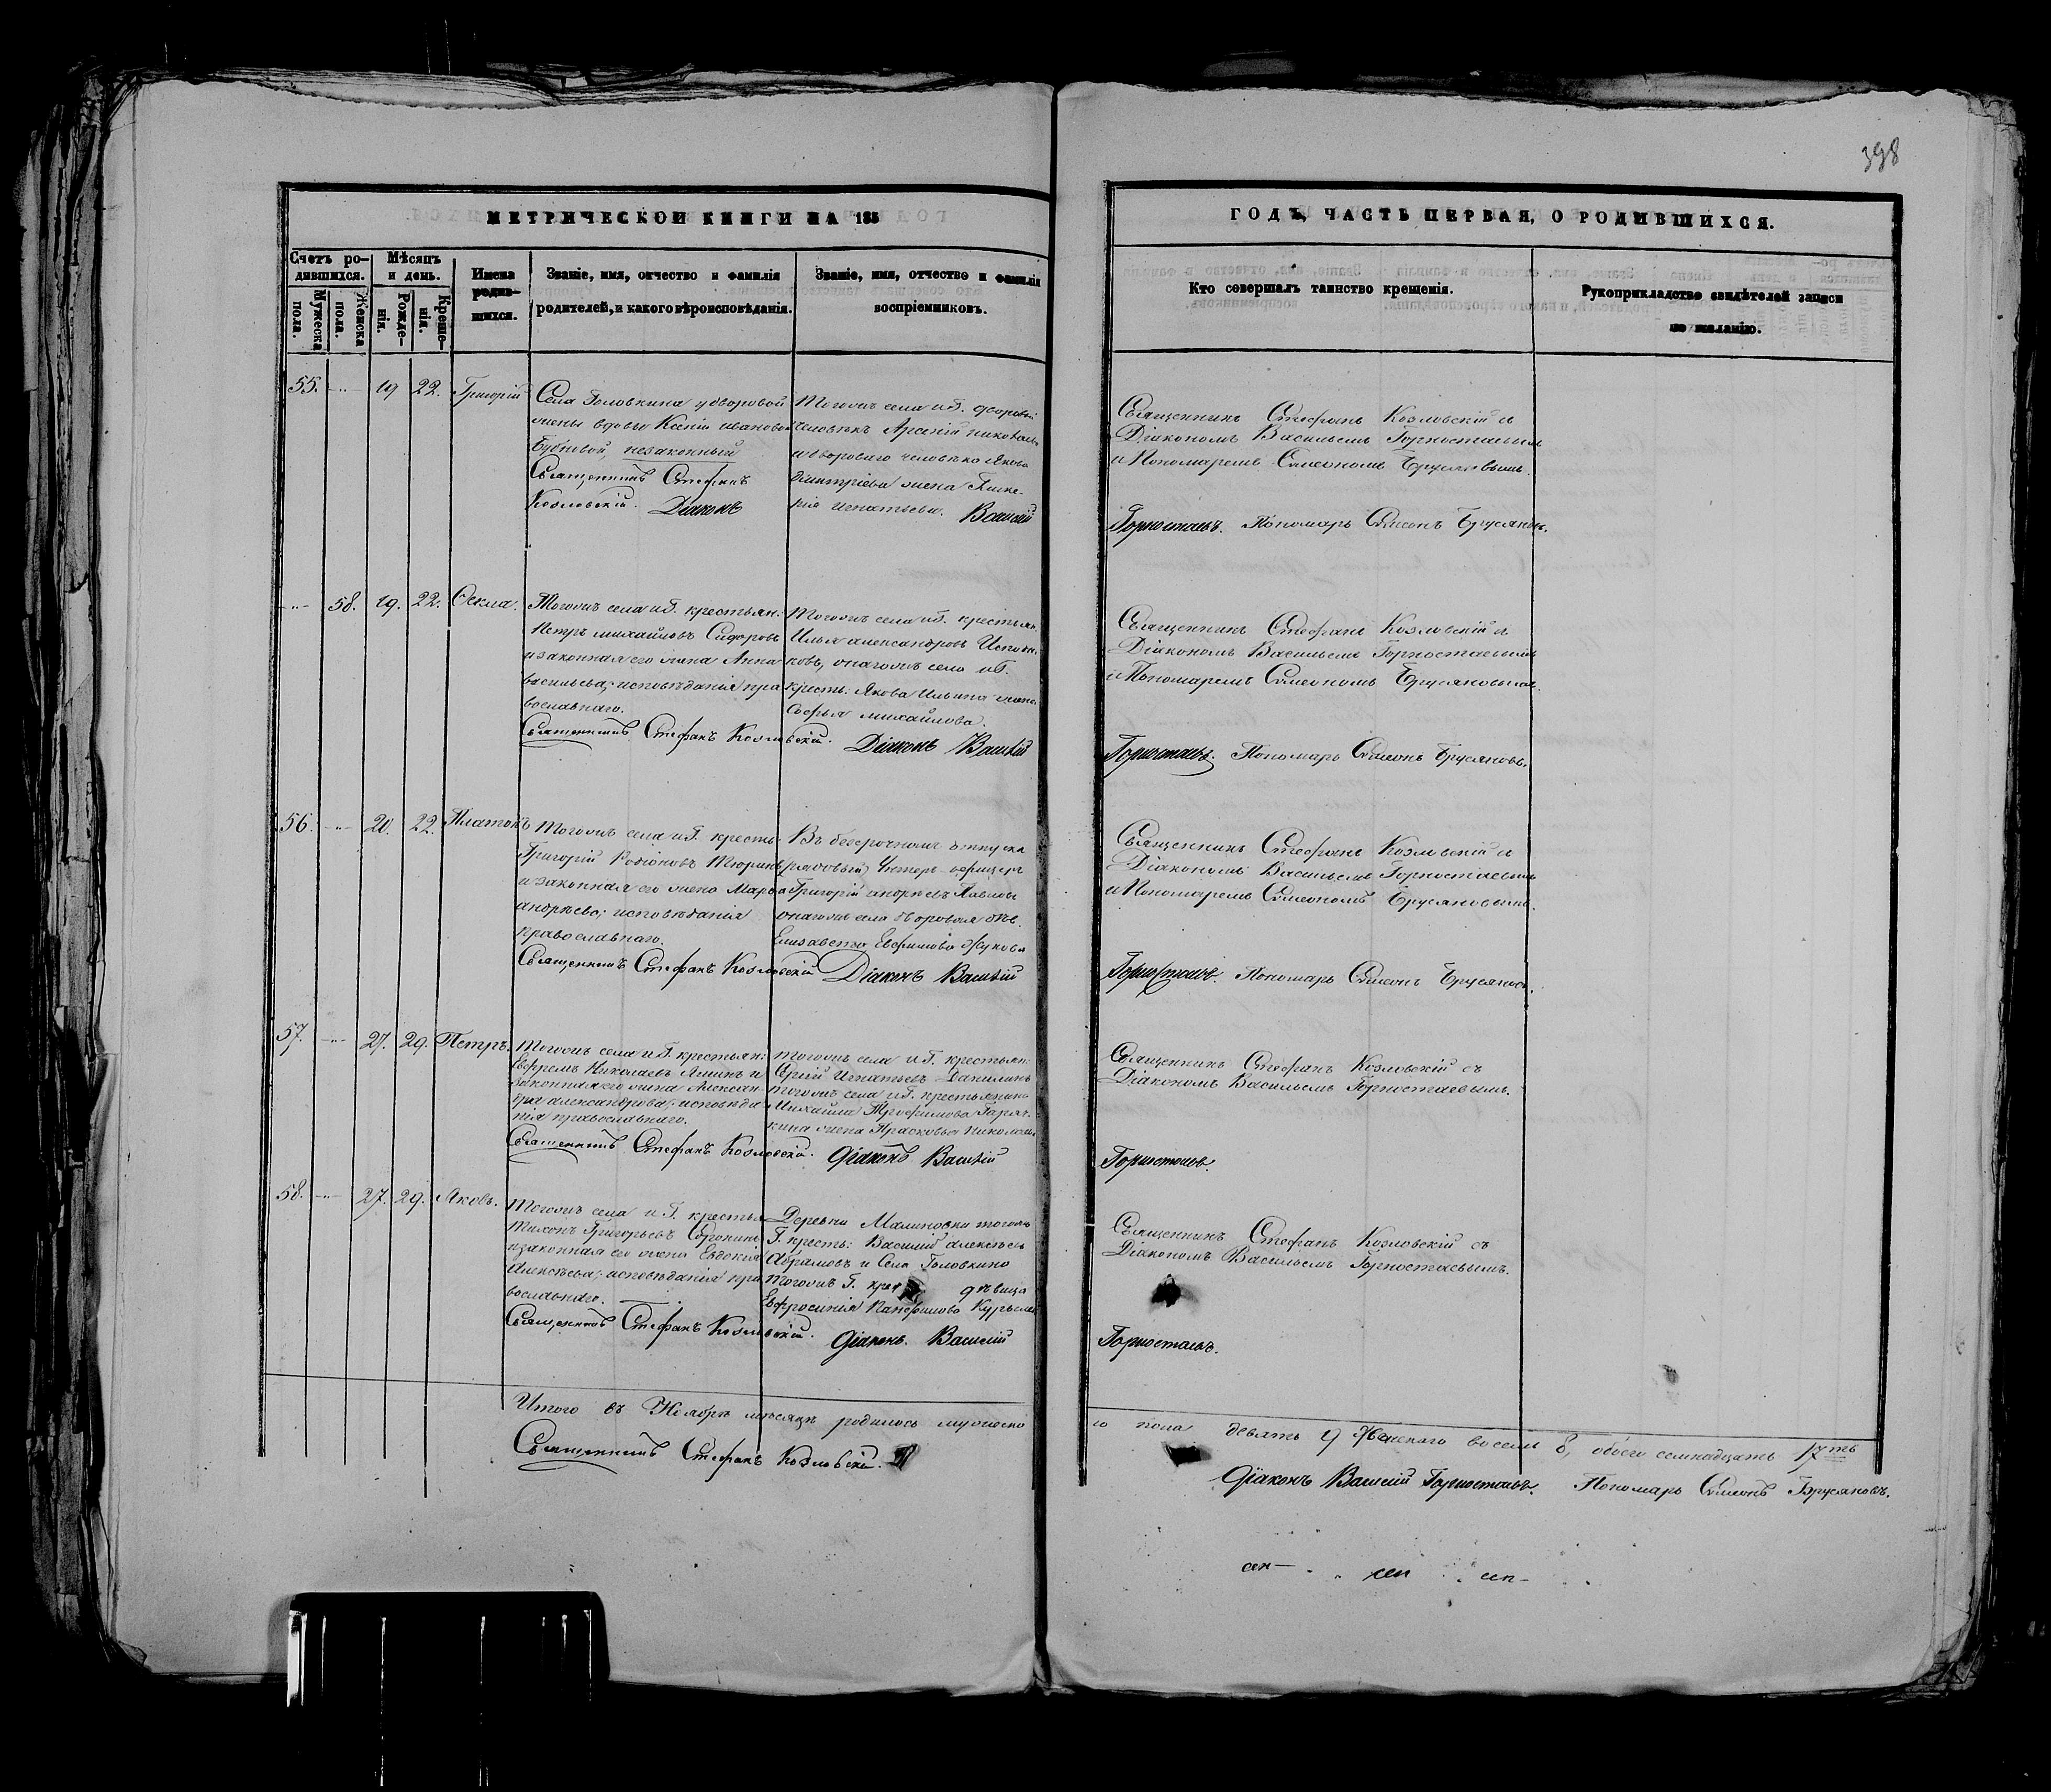 398
МЕТРИЧЕСКОЙ КНИГИ НА 185
ГОДЪ, ЧАСТЬ ПЕРВАЯ, О РОДИВШИХСЯ.
Счетъ ро-
дившихся.
Мужеска
пола.
Женска
пола.
Мѣсяцъ
и день.
Рожде-
нія.
Креще-
нія.
Имена
родив-
шихся.
Званіе, имя, отчество и фамилія
родителей, и какого вѣроисповѣданія.
Званіе, имя, отчество и фамилія
воспріемниковъ.
Кто совершалъ таинство крещенія.
Рукоприкладство свидѣтелей записи
по желанію.
55. 19 22. Григорій
Села Головкина удворовой
жены вдовы Ксеніи Ивановой
незаконный
Священникъ Стефанъ
Козловскій. Діаконъ
Тогожъ села и Г. дворовый
человѣкъ Арсеній
и двороваго человѣка Якова
Дмитріева жена Глике-
рія Игнатьева. Василій
Священникъ Стефанъ Козловскій съ
Діакономъ Васильемъ Горностаевымъ
и Пономаремъ Симеономъ Брусяновымъ.
Горностаевъ. Пономарь Симеонъ Брусяновъ.
58. 19. 22. Ѳекла.
Тогожъ села и Г. крестьян:
Петръ Михайловъ Сидоровъ
и законная его жена Анна
Васильева; исповѣданія пра
вославнаго.
Священникъ Стефанъ Козловскій.
Тогожъ села и Г. крестьян.
Илья Александровъ
онагожъ села и Г.
кресть: Якова Ильина жена
Софья Михайлова.
Діаконъ Василій
Священникъ Стефанъ Козловскій съ
Діакономъ Васильемъ Горностаевымъ
и Пономаремъ Симеономъ Брусяновымъ.
Горностаевъ. Пономарь Симеонъ Брусяновъ.
56. 20. 22. Платонъ
Тогожъ села и Г. кресть:
Григорій Родіоновъ Тюринъ
и законная его жена Марѳа
Андрѣева; исповѣданія
православнаго.
Священникъ Стефанъ Козловскій
Въ безсрочномъ отпуску
Унтеръ офицеръ
Григорій Андрѣевъ Павловъ
онагожъ села дворовая дѣв.
Елизавета Евфимова Жукова
Діаконъ Василій
Священникъ Стефанъ Козловскій съ
Діакономъ Васильемъ Горностаевымъ
и Пономаремъ Симеономъ Брусяновымъ.
Горностаевъ. Пономарь Симеонъ Брусяновъ.
57. 27. 29. Петръ.
Тогожъ села и Г. крестьян:
Ефремъ Николаевъ Яшинъ и
законная его жена Алексан
дра Александрова; исповѣда
нія православнаго.
Священникъ Стефанъ Козловскій.
Тогожъ села и Г. крестьян:
Сергій Игнатьевъ Данилинъ
тогожъ села и Г. крестьянина
Михайла Трофимова Горяч-
кина жена Прасковья
Діаконъ Василій
Священникъ Стефанъ Козловскій съ
Діакономъ Васильемъ Горностаевымъ.
Горностаевъ.
58. 27. 29. Яковъ.
Тогожъ села и Г. крестья
Тихонъ Григорьевъ
и законная его жена Евдокія
Алексѣева; исповѣданія пра
вославнаго.
Священникъ Стефанъ Козловскій.
Деревни Малиновки тогожъ
Г. кресть: Василій Алексѣевъ
Абрамовъ и Села Головкина
тогожъ Г. дѣвица
Евфросинія Панфилова
Діаконъ. Василій
Священникъ Стефанъ Козловскій съ
Діакономъ Васильемъ Горностаевымъ.
Горностаевъ.
Итого въ Ноябрѣ мѣсяцѣ родилось мужеска
го пола девять 9 Женскаго восемь 8, обоего семнадцать 17ть
Священникъ Стефанъ Козловскій.
Діаконъ Василій Горностаевъ. Пономарь Симеонъ Брусяновъ.